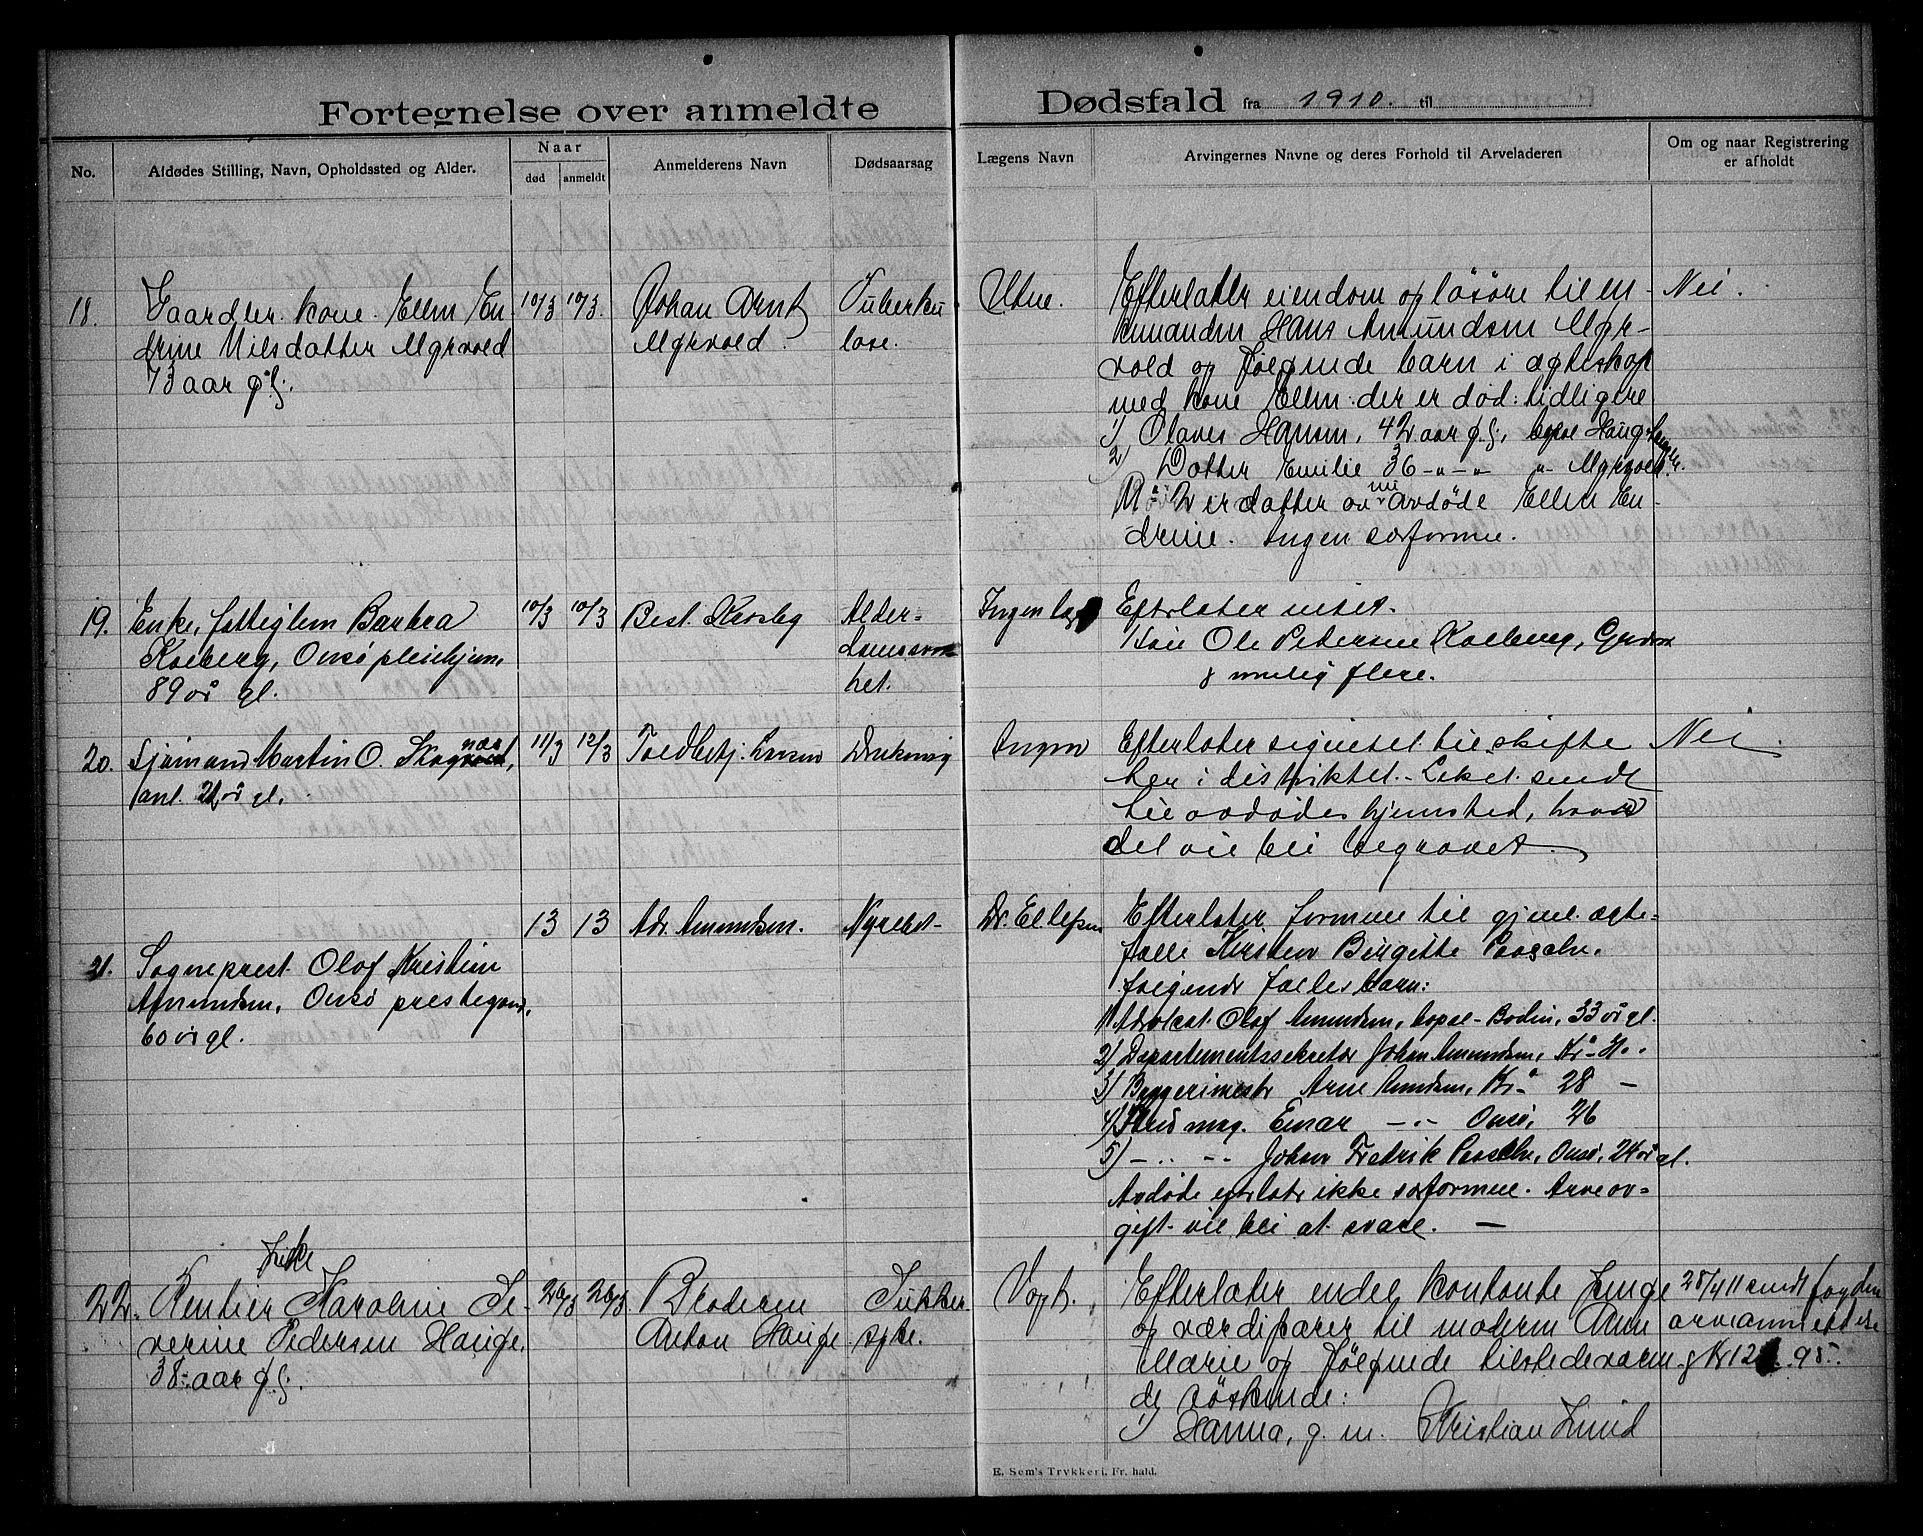 Fortegnelse over anmeldte Dødsfald fra 1910. til
No.
Afdødes Stilling, Navn, Opholdssted og Alder.
Naar
død
anmeldt
Anmelderens Navn
Dødsaarsag
Lægens Navn
Arvingernes Navne og deres Forhold til Arveladeren
Om og naar Registrering
er afholdt
18.
Gaardbr. kone Ellen En
drine Nilsdatter Mgrvold
73 aar g.l.
10/3
10/3.
Johan Arnt
Mgrvold.
Tuberku
lose.
Utne.
Efterlater eiendom og løsøre til en-
kemanden Hans Amundsen Mgr-
vold og følgende barn i ægteskap
med kone Ellen der er død tidligere
1) Olaves Hansen, 42 aar g.l., Haug
2) Datter Emilie 36 -"-"- " Mgrvold.
No 2 er datter av nu avdøde Ellen En-
drine. Ingen særformue.
Nei.
19.
Enke, fattiglem Barbra
Kaeberg, Onsø pleiehjem,
89 år gl.
10/3
10/3
Best. Krosby
Alder-
domssvak
het.
Ingen
Efterlater intet.
Ole Pedersen Kaeberg,
& mulig flere.
20.
Sjømand Martin O. Skog
ant. 21 år gl.
11/3
12/3
Toldbetj. Larsen
Drukning
Ingen
Efterlater signetet til skifte
her i distriktet. Liket sendt
til avdødes hjemsted, hvor
det vil bli begravet.
Nei.
21.
Sogneprest Olaf Kristian
Amundsen, Onsø prestegaard,
60 år gl.
13
13
Adv. Amundsen.
Nyrebet-
Dr. Ellefsen
Efterlater formue til gjenl. ægte-
fælle Kirsten Birgitte Paaske.
følgende fælles barn:
1) Advokat Olaf Amundsen, Bodin, 33 år gl.
2) Departementssekretær Johan Amundsen, Kr.a
3) Arne Amundsen, Kr.a 28 -
4) Einar -"- Onsø, 26
5) -"- -"- Johan Fredrik Paaske, Onsø, 24 år gl.
Avdøde efterlater ikke særformue. Arveav-
gift vil bli at svare. -
22.
Rentier Karoline Se-
verine Pedersen Hauge.
38 aar g.l.
26/3
26/3
Broderen
Anton Hauge
Sukker
syke.
Vogt.
Efterlater endel kontante penge
og værdipapirer til moderen Anne
Marie og følgende tilstedeværen-
de søskende:
1) Hanna, g. m. Kristian Lund
28/4 11 sendt fogden
arveanmeldelse
E. Sem's Trykkeri, Fr. hald.